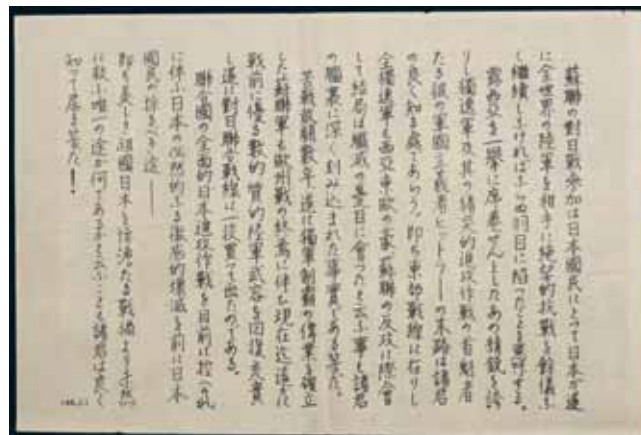 蘇聯の對日戰參加は日本國民にとつて日本が遂
に全世界の陸軍を相手に絶望的抗戰を餘儀ふ
し繼續しなければふらぬ羽目に陥つたことを意味する。
露西亞を一擧に席巻せんとしたあの精鋭を誇
りし獨逸軍及其の積極的進攻作戰の首魁者
たる彼の軍國主義者ヒットラーの末路は諸君
の良く知る處であらう。即ち東部戰線に在りし
全獨逸軍も西亞東歐の雪家、蘇聯の反攻に際會
して結局は繊滅の憂目に會つたと云ふ事も諸君
の腦裏に深く刻み込まれた事實である筈だ。
苦戰放棄數年、遂に獨軍制覇の偉業を確立
した蘇聯軍も歐州戰の終焉に伴ひ現在迄遥に
戰前に優る數的質的陸軍武容を回復充實
し遂に對日聯合戰線に一役買つて出たのである。
聯合國の全面的日本進攻作戰を目前に控へ、
に伴ふ日本の必然的ふる徹底的壊滅を前に日本
國民が採るべき途――
即ち美しき祖國日本を悲滲ふる戰禍より未然
に救ふ唯一の途が何であるかと云ふことも諸君は良く
知つて居る筈だ!